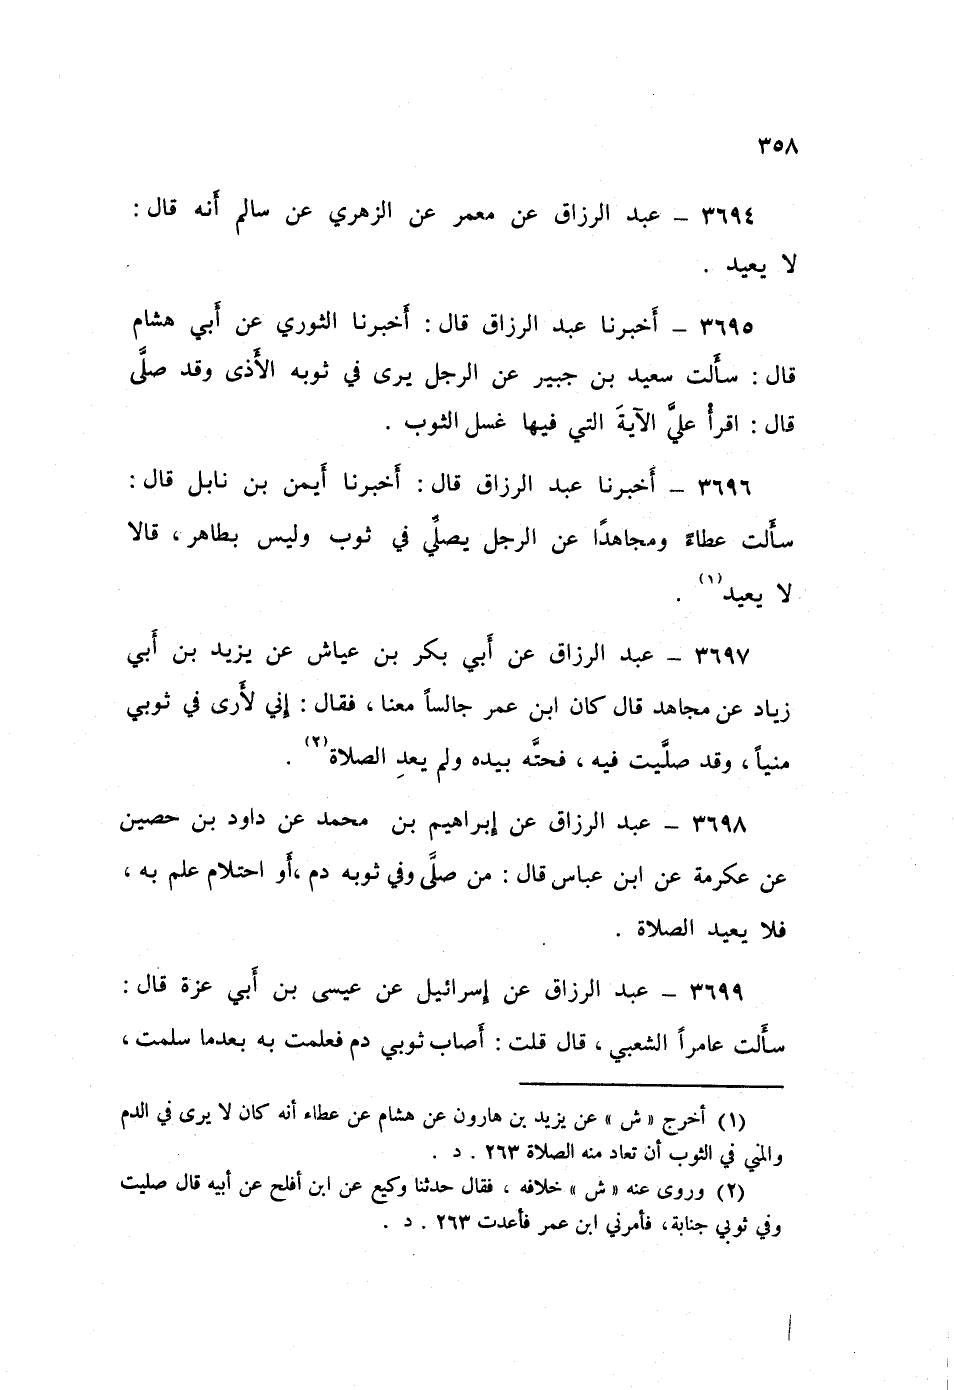 ٣٥٨
٣٦٩٤ – عبد الرزاق عن معمر عن الزهري عن سالم أَنه قال :
لا يعيد .
٣٦٩٥ – أَخبرنا عبد الرزاق قال : أَخبرنا الثوري عن أَبي هشام
قال : سأَلت سعيد بن جبير عن الرجل يرى في ثوبه الأَذى وقد صلَّى
قال : اقرأْ عليَّ الآيةَ التي فيها غسل الثوب .
٣٦٩٦ – أَخبرنا عبد الرزاق قال : أَخبرنا أَيمن بن نابل قال :
سأَلت عطاءً ومجاهدًا عن الرجل يصلِّي في ثوب وليس بطاهر ، قالا
لا يعيد(١) .
٣٦٩٧ – عبد الرزاق عن أَبي بكر بن عياش عن يزيد بن أَبي
زياد عن مجاهد قال كان ابن عمر جالساً معنا ، فقال : إني لأَرى في ثوبي
منياً ، وقد صلَّيت فيه ، فحتَّه بيده ولم يعدِ الصلاة(٢) .
٣٦٩٨ – عبد الرزاق عن إبراهيم بن محمد عن داود بن حصين
عن عكرمة عن ابن عباس قال : من صلَّى وفي ثوبه دم ،أَو احتلام علم به ،
فلا يعيد الصلاة .
٣٦٩٩ – عبد الرزاق عن إسرائيل عن عيسى بن أَبي عزة قال :
سأَلت عامراً الشعبي ، قال قلت : أَصاب ثوبي دم فعلمت به بعدما سلمت ،
(١) أخرج « ش » عن يزيد بن هارون عن هشام عن عطاء أنه كان لا يرى في الدم
والمني في الثوب أن تعاد منه الصلاة ٢٦٣ . د .
(٢) وروى عنه « ش » خلافه ، فقال حدثنا وكيع عن ابن أفلح عن أبيه قال صليت
وفي ثوبي جنابة، فأمرني ابن عمر فأعدت ٢٦٣ . د .